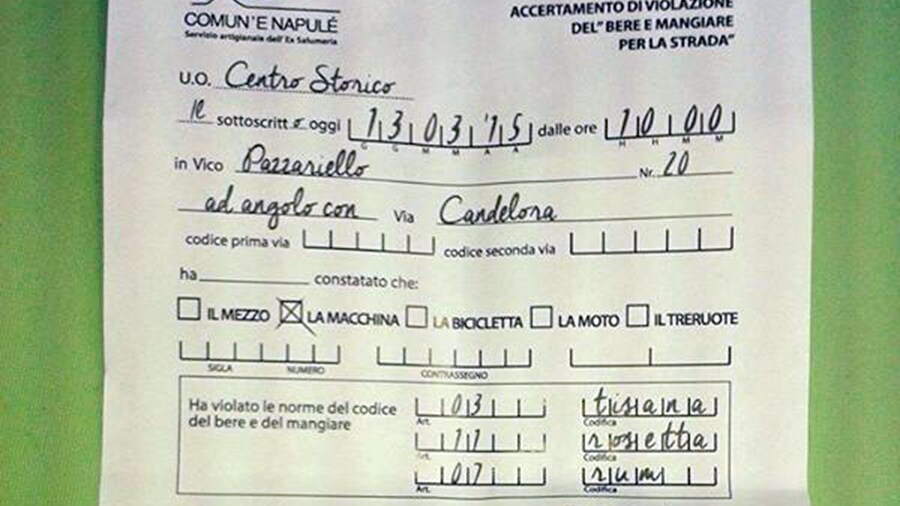 COMUN'E NAPULÉ
Servizio artigianale dell'Ex Salumeria
ACCERTAMENTO DI VIOLAZIONE
DEL" BERE E MANGIARE
PER LA STRADA"
U.O. Centro Storico
Il sottoscritto oggi 13 03 '15 dalle ore 10 00
G G M M A A H H M M
in Vico Pazzariello Nr. 20
ad angolo con Via Candelora
codice prima via codice seconda via
ha constatato che:
IL MEZZO LA MACCHINA LA BICICLETTA LA MOTO IL TRERUOTE
SIGLA NUMERO CONTRASSEGNO
Ha violato le norme del codice
del bere e del mangiare
03 tisana
Art. Codifica
11 rosetta
Art. Codifica
07 rum
Art. Codifica